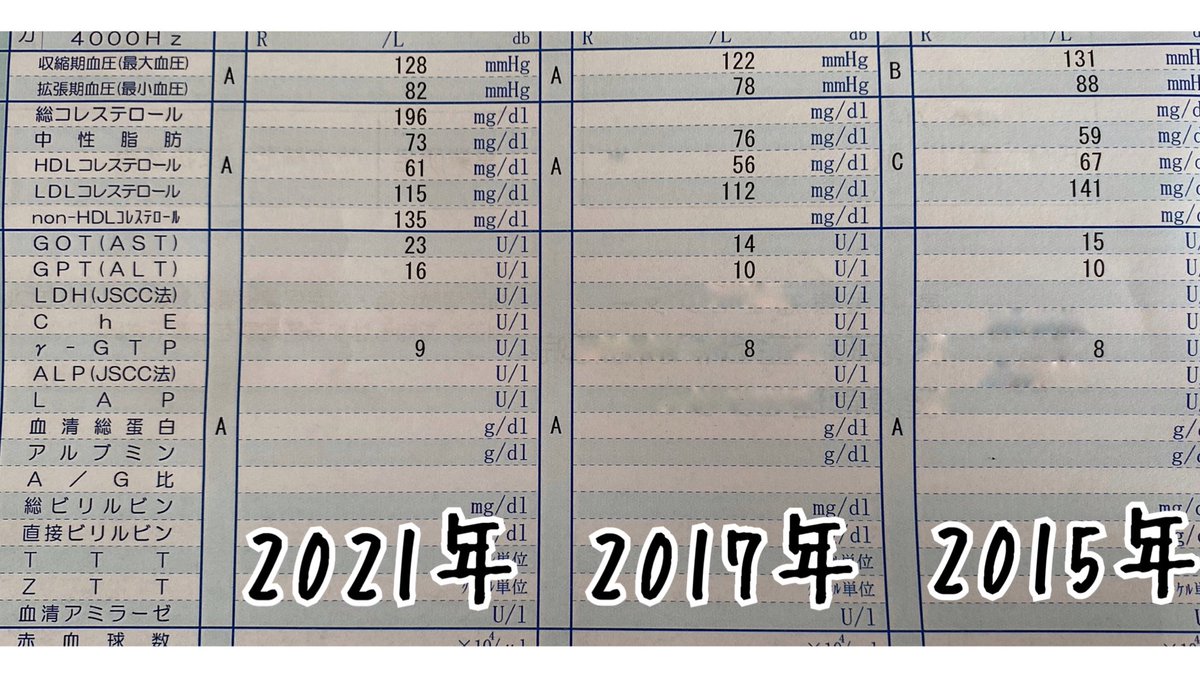 力 4000Hz R /L db R /L db R /L d
収縮期血圧(最大血圧) A 128 mmHg A 122 mmHg B 131 mmH
拡張期血圧(最小血圧) 82 mmHg 78 mmHg 88 mmH
総コレステロール 196 mg/dl mg/dl mg/d
中性脂肪 73 mg/dl 76 mg/dl 59 mg/d
HDLコレステロール A 61 mg/dl A 56 mg/dl C 67 mg/d
LDLコレステロール 115 mg/dl 112 mg/dl 141 mg/d
non-HDLコレステロール 135 mg/dl mg/dl mg/d
GOT(AST) 23 U/l 14 U/l 15 U
GPT(ALT) 16 U/l 10 U/l 10 U
LDH(JSCC法) U/l U/l U
ChE U/l U/l U
γ-GTP 9 U/l 8 U/l 8 U
ALP(JSCC法) U/l U/l U
LAP U/l U/l U
血清総蛋白 A g/dl A g/dl A g/
アルブミン g/dl g/dl g/
A/G比
総ビリルビン mg/dl mg/dl mg/d
直接ビリルビン
TTT 単位 単位
ZTT 単位 単位
2021年 2017年 2015年
血清アミラーゼ U/l U/l U
赤血球数